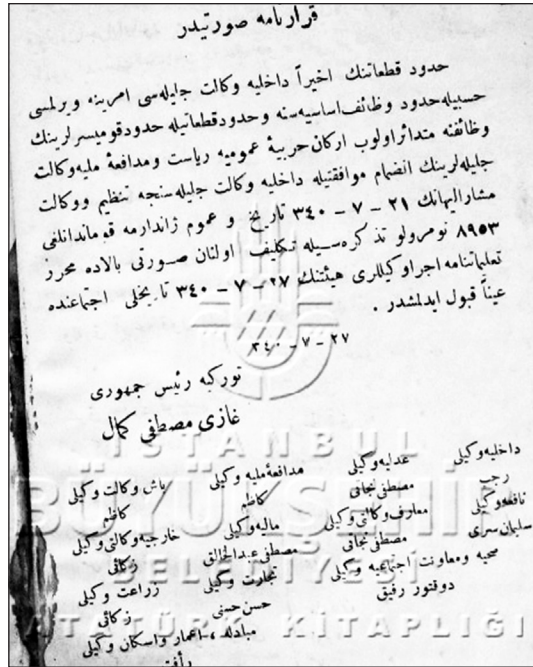 قرارنامه صورتيدر
حدود قطعاتنك اخيراً داخليه وكالت جليله‌سى امرينه ويرلمسى
حسبيله حدود وظائف اساسيه‌سنه وحدود قطعاتيله حدود قوميسرلرينك
وظائفنه متدائر اولوب اركان حربيۀ عموميه رياست ومدافعۀ مليه وكالت
جليله‌لرينك انضمام موافقتيله داخليه وكالت جليله‌سنجه تنظيم ووكالت
مشاراليهانك ٢١ - ٧ - ٣٤٠ تاريخ و عموم ژاندارمه قوماندانلغى
٨٩٥٣ نومرولو تذكره‌سيله تكليف اولنان صورتى بالاده محرر
تعليماتنامه اجرا وكيللرى هيئتنك ٢٧ - ٧ - ٣٤٠ تاريخلى اجتماعنده
عيناً قبول ايدلمشدر .
٢٧ - ٧ - ٣٤٠
توركيه رئيس جمهورى
غازى مصطفى كمال
داخليه وكيلى عدليه وكيلى مدافعۀ مليه وكيلى باش وكالت وكيلى
رجب مصطفى نجاتى كاظم كاظم
نافعه وكيلى معارف وكالتى وكيلى ماليه وكيلى خارجيه وكالتى وكيلى
سليمان سرى مصطفى نجاتى مصطفى عبدالخالق زكائى
صحيه ومعاونت اجتماعيه وكيلى تجارت وكيلى زراعت وكيلى
دوقتور رفيق حسن حسنى زكائى
مبادله ، اعمار واسكان وكيلى
رأفت
ISTANBUL
BÜYÜKŞEHİR
BELEDİYESİ
ATATÜRK KİTAPLIĞI